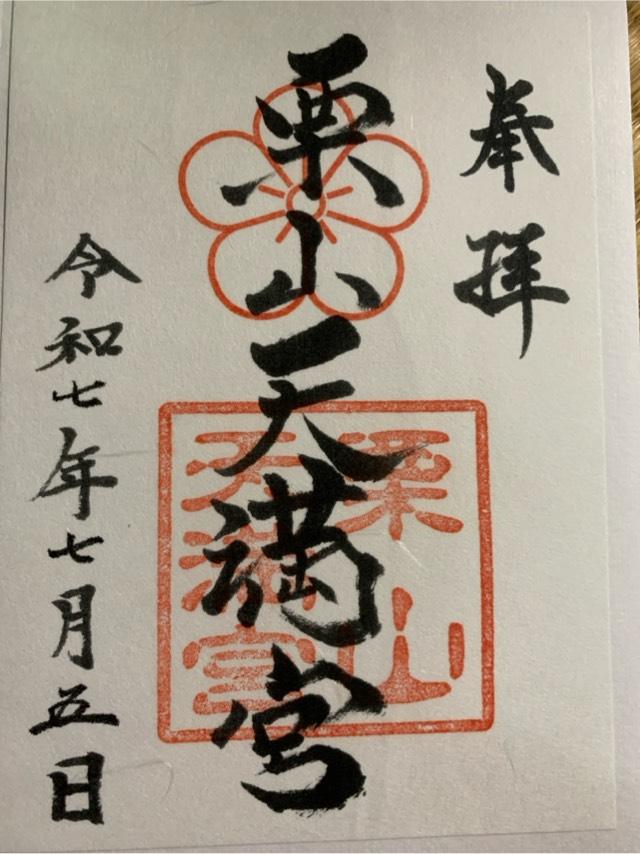 奉拝
栗山天満宮
栗山
天満宮
令和七年七月五日